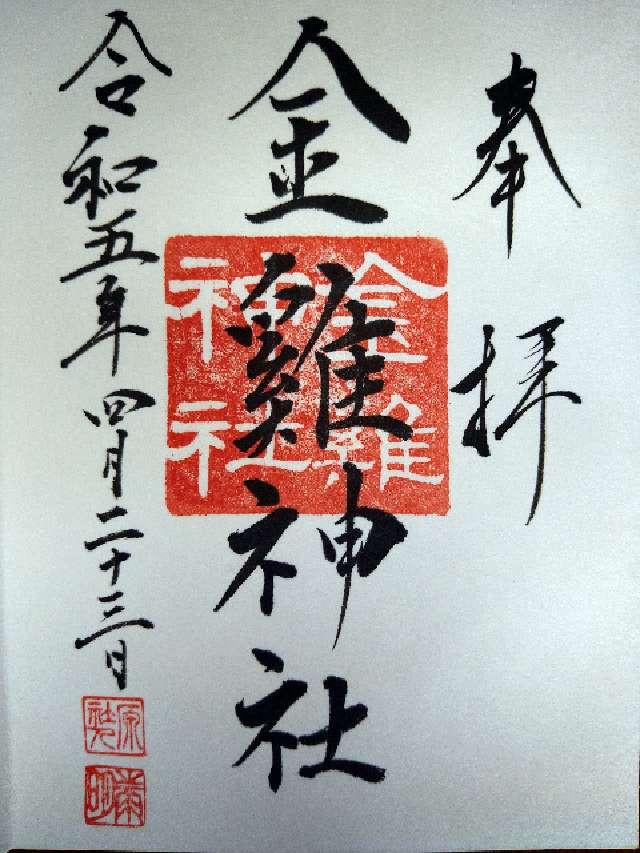 奉拝
金雞神社
金雞神社
令和五年四月二十三日